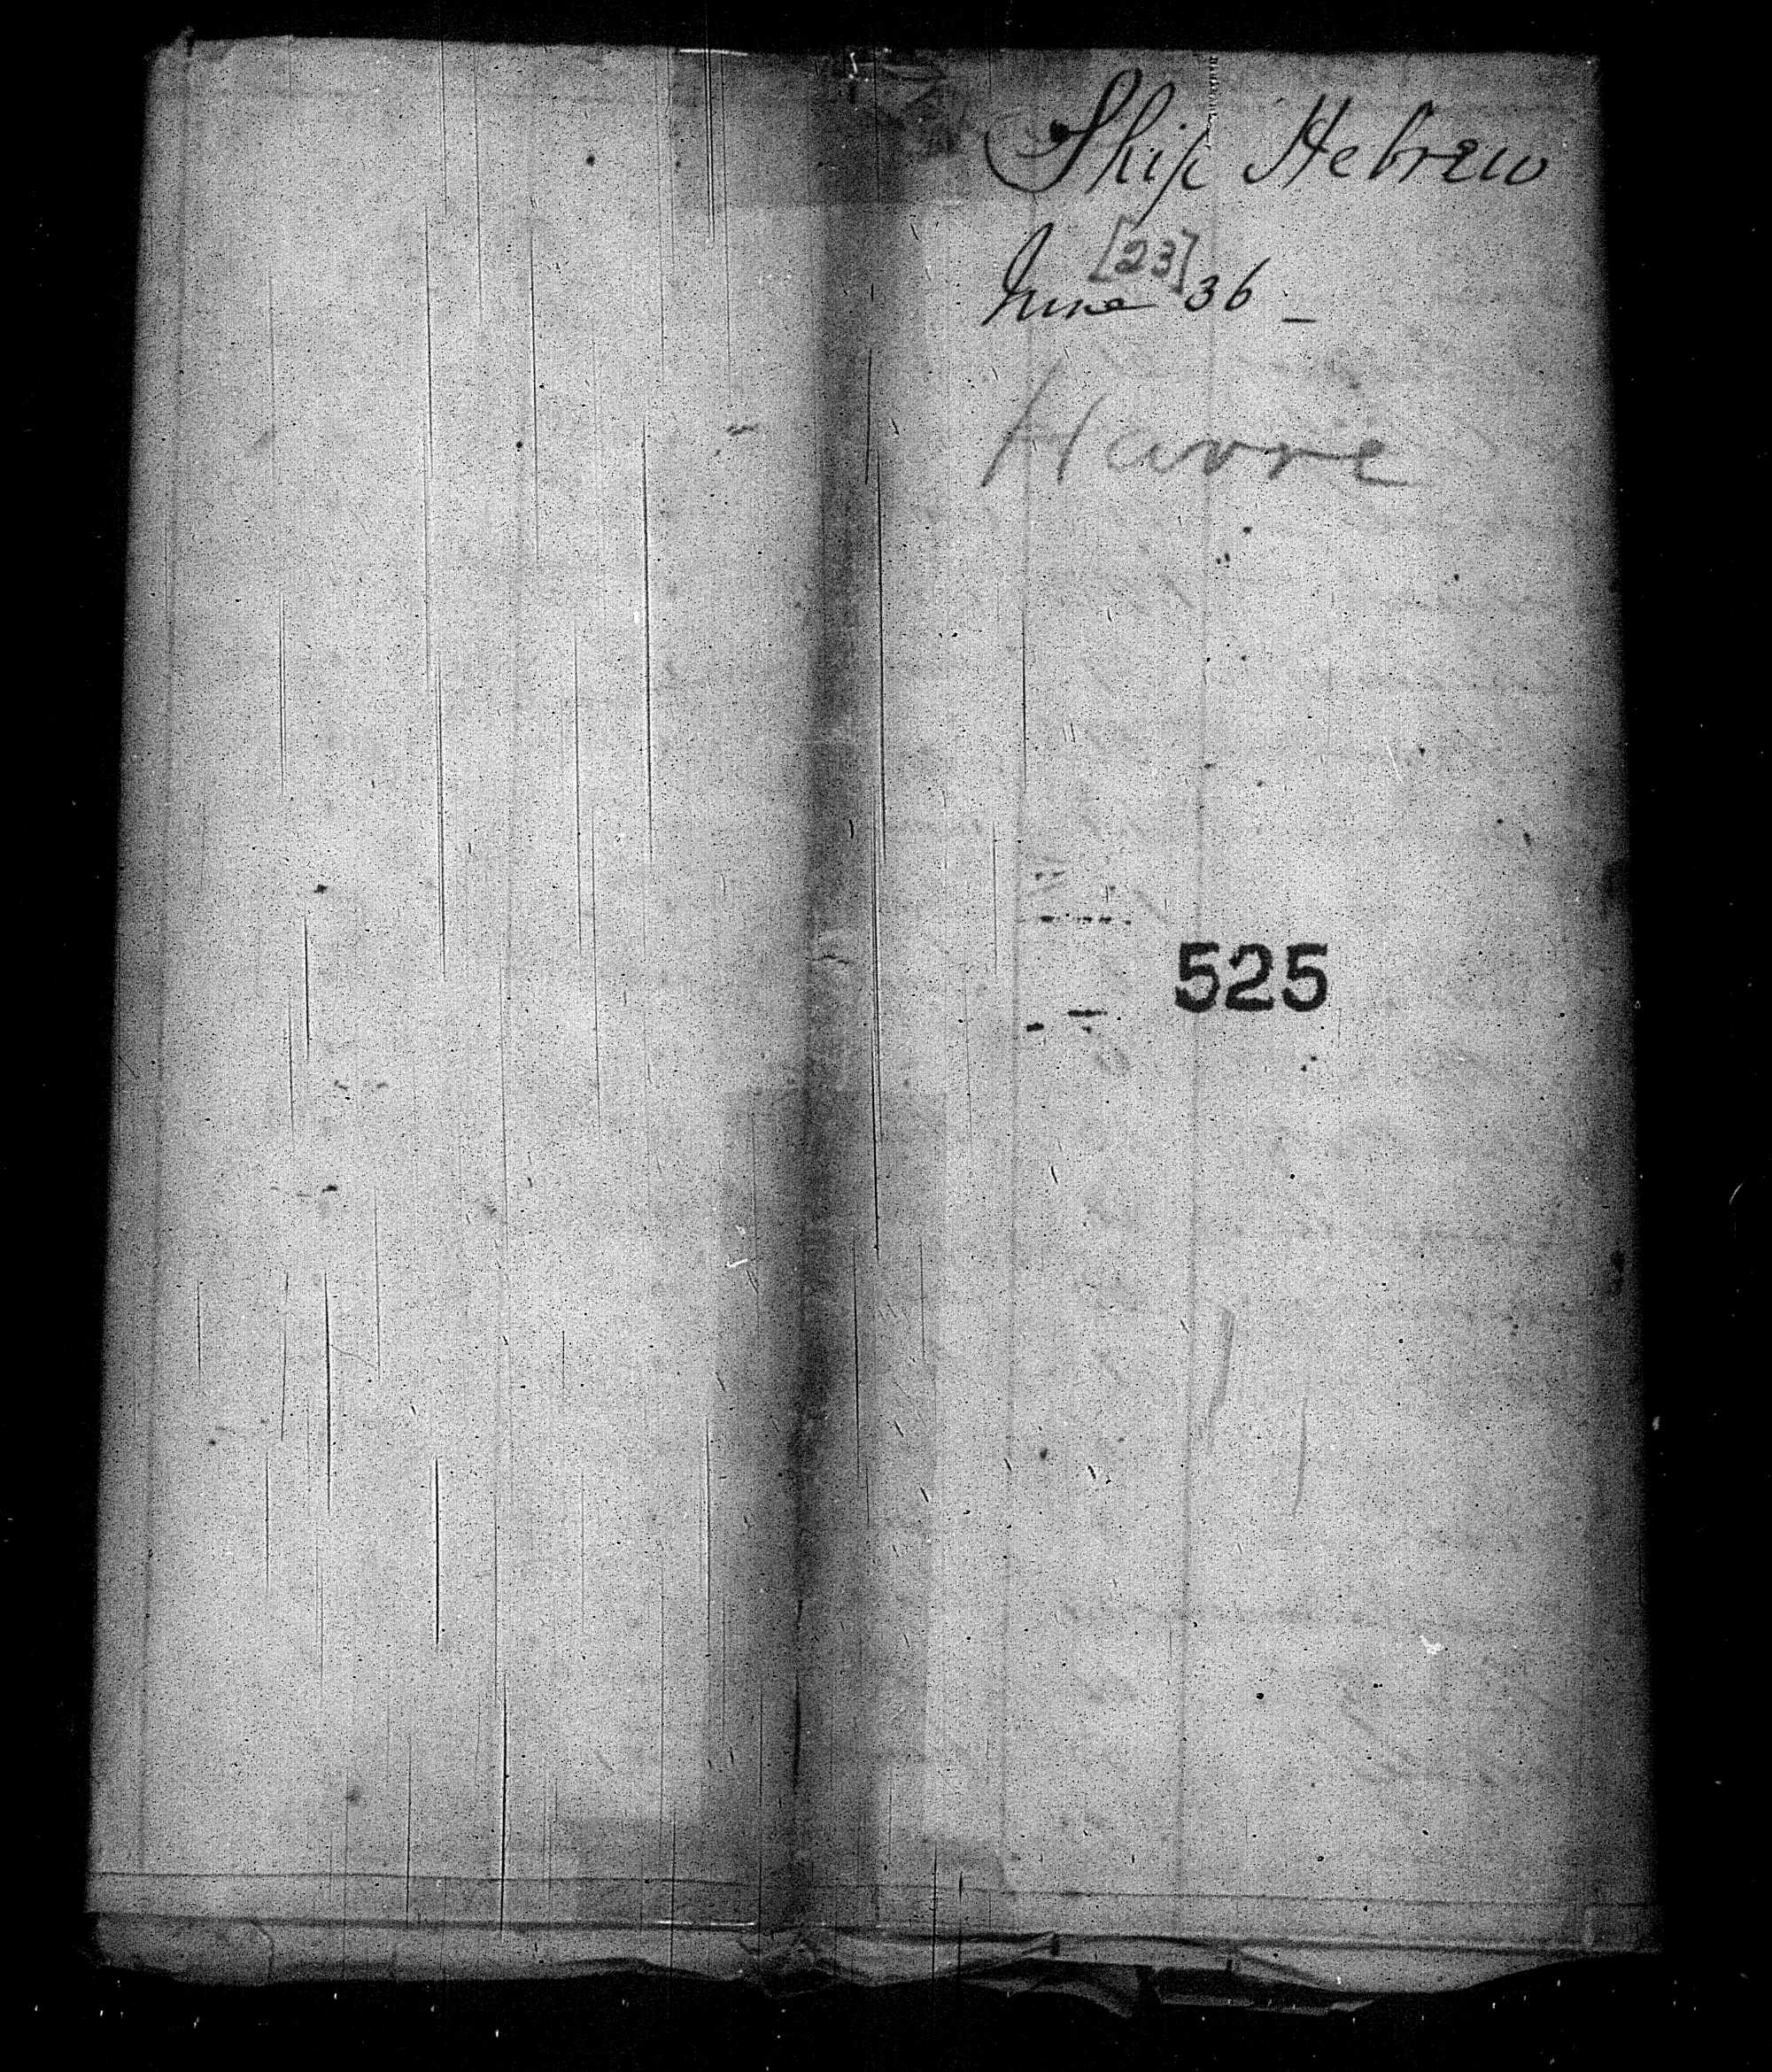 Ship Hebrew
[23]
June 36 _
Havre
525